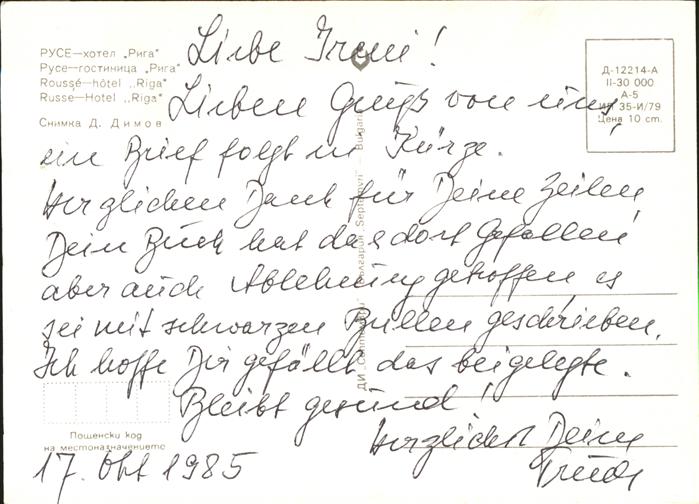 Liebe Ireni!
РУСЕ—хотел „Рига"
Русе—гостиница „Рига"
Roussé—hôtel ,,Riga"
Russe—Hotel ,,Riga"
Снимка Д. Димов
Д-12214-А
II-30 000
А-5
ИП 35-И/79
Цена 10 cm.
Lieben Gruß von uns,
ein Brief folgt in Kürze.
Herzlichen Dank für Deine Zeilen
Dein Buch hat da & dort gefallen
aber auch Ablehnung getroffen, es
sei mit schwarzen Brillen geschrieben.
Ich hoffe Dir gefällt das beigelegte.
Bleibt gesund!
Herzlichst Deine
Trude
17. Okt 1985
Пощенски код
на местоназначението
ДИ „ България Septemvri — Bulgaria